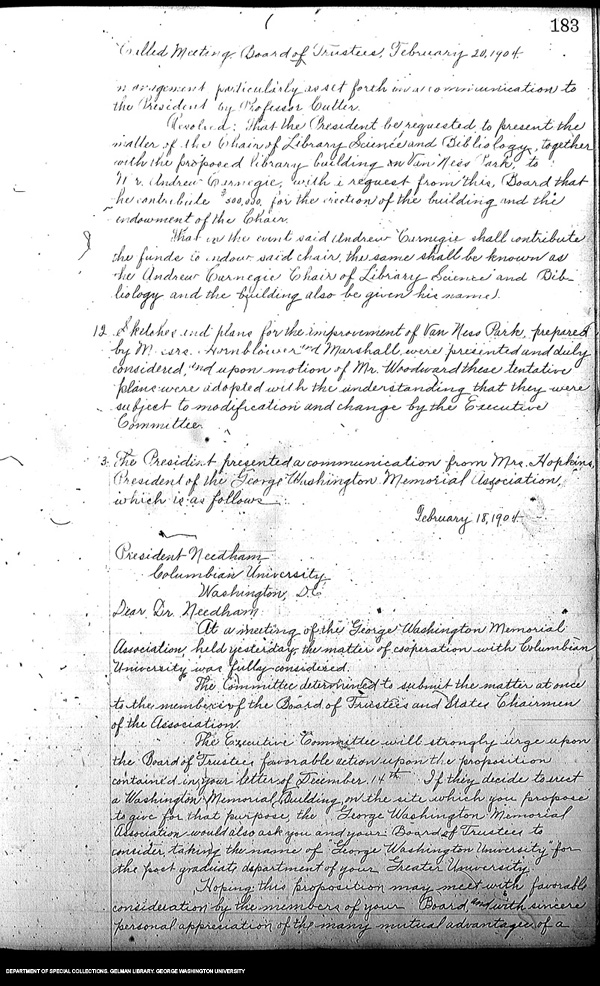 183
Called Meeting Board of Trustees, February 20, 1904.
management particularly as set forth in a communication to
the President by Professor Cutter.
Resolved: That the President be requested to present the
matter of the Chair of Library Science and Bibliology, together
with the proposed library building on Van Ness Park, to
Mr. Andrew Carnegie, with a request from this Board that
he contribute $500,000. for the erection of the building and the
endowment of the Chair.
That in the event said Andrew Carnegie shall contribute
the funds to endow said chair, the same shall be known as
the Andrew Carnegie Chair of Library Science and Bib-
liology and the building also be given his name.
12. Sketches and plans for the improvement of Van Ness Park, prepared
by Messrs. Hornblower and Marshall, were presented and duly
considered, and upon motion of Mr. Woodward these tentative
plans were adopted with the understanding that they were
subject to modification and change by the Executive
Committee.
3. The President presented a communication from Mrs. Hopkins,
President of the George Washington Memorial Association,
which is as follows:
February 18, 1904.
President Needham
Columbian University
Washington, D.C.
Dear Dr. Needham:
At a meeting of the George Washington Memorial
Association, held yesterday, the matter of cooperation with Columbian
University was fully considered.
The Committee determined to submit the matter at once
to the members of the Board of Trustees and States Chairmen
of the Association.
The Executive Committee will strongly urge upon
the Board of Trustees favorable action upon the proposition
contained in your letter of December 14th. If they decide to erect
a Washington Memorial Building on the site which you propose
to give for that purpose, the George Washington Memorial
Association would also ask you and your Board of Trustees to
consider taking the name of "George Washington University" for
the post graduate department of your Greater University.
Hoping this proposition may meet with favorable
consideration by the members of your Board, and with sincere
personal appreciation of the many mutual advantages of a
DEPARTMENT OF SPECIAL COLLECTIONS. GELMAN LIBRARY. GEORGE WASHINGTON UNIVERSITY